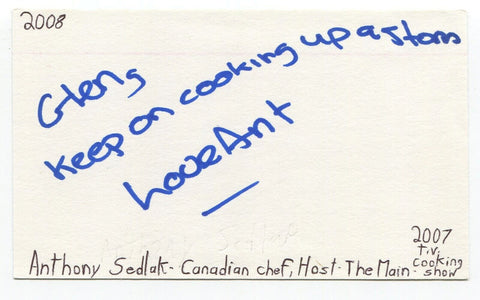 2008
Glen,
keep on cooking up a storm
Love Ant
2007
T.V.
Cooking
Anthony Sedlak - Canadian chef, Host - The Main - show